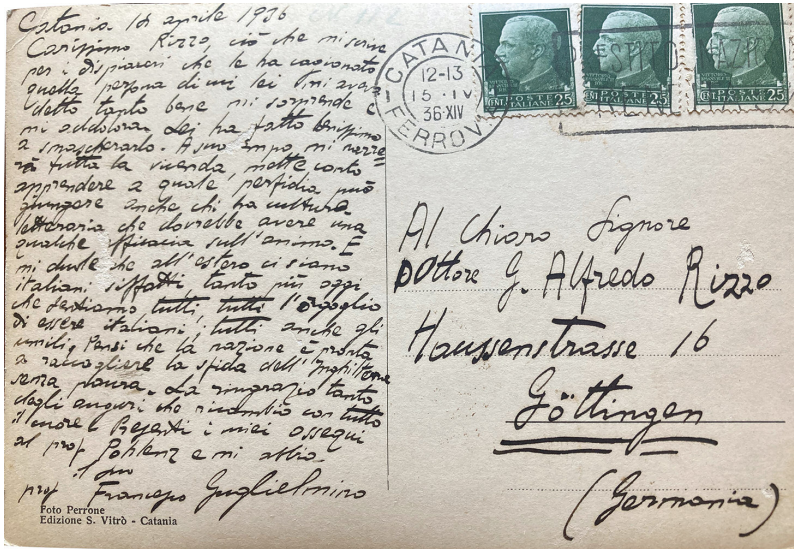 Catania 16 aprile 1936
Carissimo Rizzo, ciò che mi scrive
per i dispiaceri che le ha cagionato
quella persona di cui lei mi aveva
detto tanto bene mi sorprende e
mi addolora. Lei ha fatto benissimo
a smascherarlo. A suo tempo, mi narre=
rà tutta la vicenda, mette conto
apprendere a quale perfidia può
giungere anche chi ha cultura
letteraria che dovrebbe avere una
qualche efficacia sull'animo. E
mi duole che all'estero ci siano
italiani siffatti tanto più oggi
che sentiamo tutti, tutti l'orgoglio
di essere italiani, tutti anche gli
umili. Pensi che la nazione è pronta
a raccogliere la sfida dell'Inghilterra
senza paura. La ringrazio tanto
degli auguri che ricambio con tutto
il cuore. Presenti i miei ossequi
al prof. Pohlenz e mi abbia
il suo
prof Francesco Guglielmino
Foto Perrone
Edizione S. Vitrò - Catania
CATANIA
12-13
15·IV
36·XIV
FERROVIA
POSTE
ITALIANE
CENT. 25
POSTE
ITALIANE
CENT. 25
POSTE
ITALIANE
CENT. 25
Al Chiaro Signore
Dottore G. Alfredo Rizzo
Haussenstrasse 16
Göttingen
(Germania)